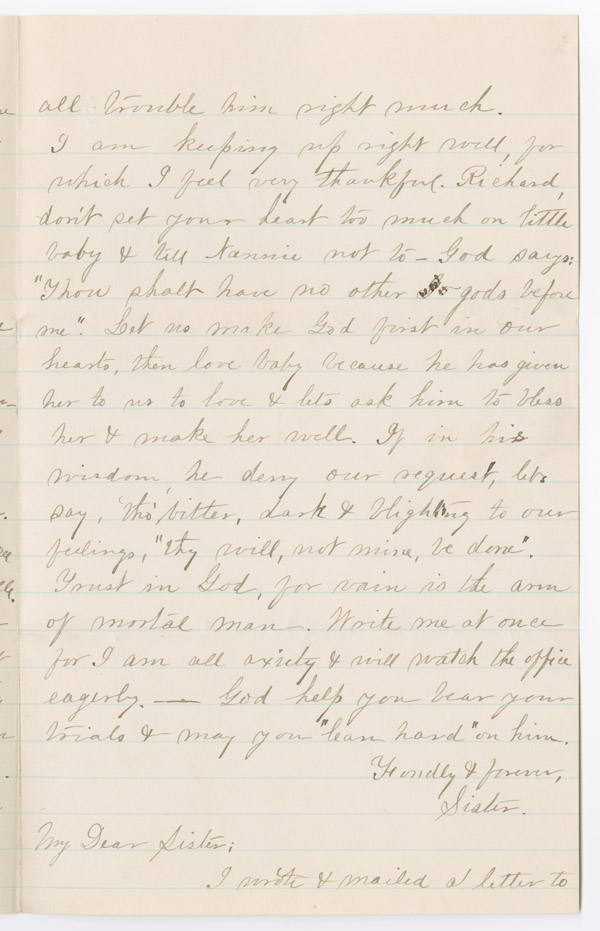 all trouble him right much.
I am keeping up right well, for
which I feel very thankful. Richard,
don't set your heart too much on little
baby & tell Nannie not to - God says:
"Thou shalt have no other gods before
me". Let us make God first in our
hearts, then love baby because he has given
her to us to love & lets ask him to bless
her & make her well. If in his
wisdom, he deny our request, lets
say, tho' bitter, dark & blighting to our
feelings, "thy will, not mine, be done".
Trust in God, for vain is the arm
of mortal man. Write me at once
for I am all axiety & will watch the office
eagerly. — God help you bear your
trials & may you "lean hard" on him.
Fondly & forever,
Sister.
My Dear Sister;
I wrote & mailed a letter to